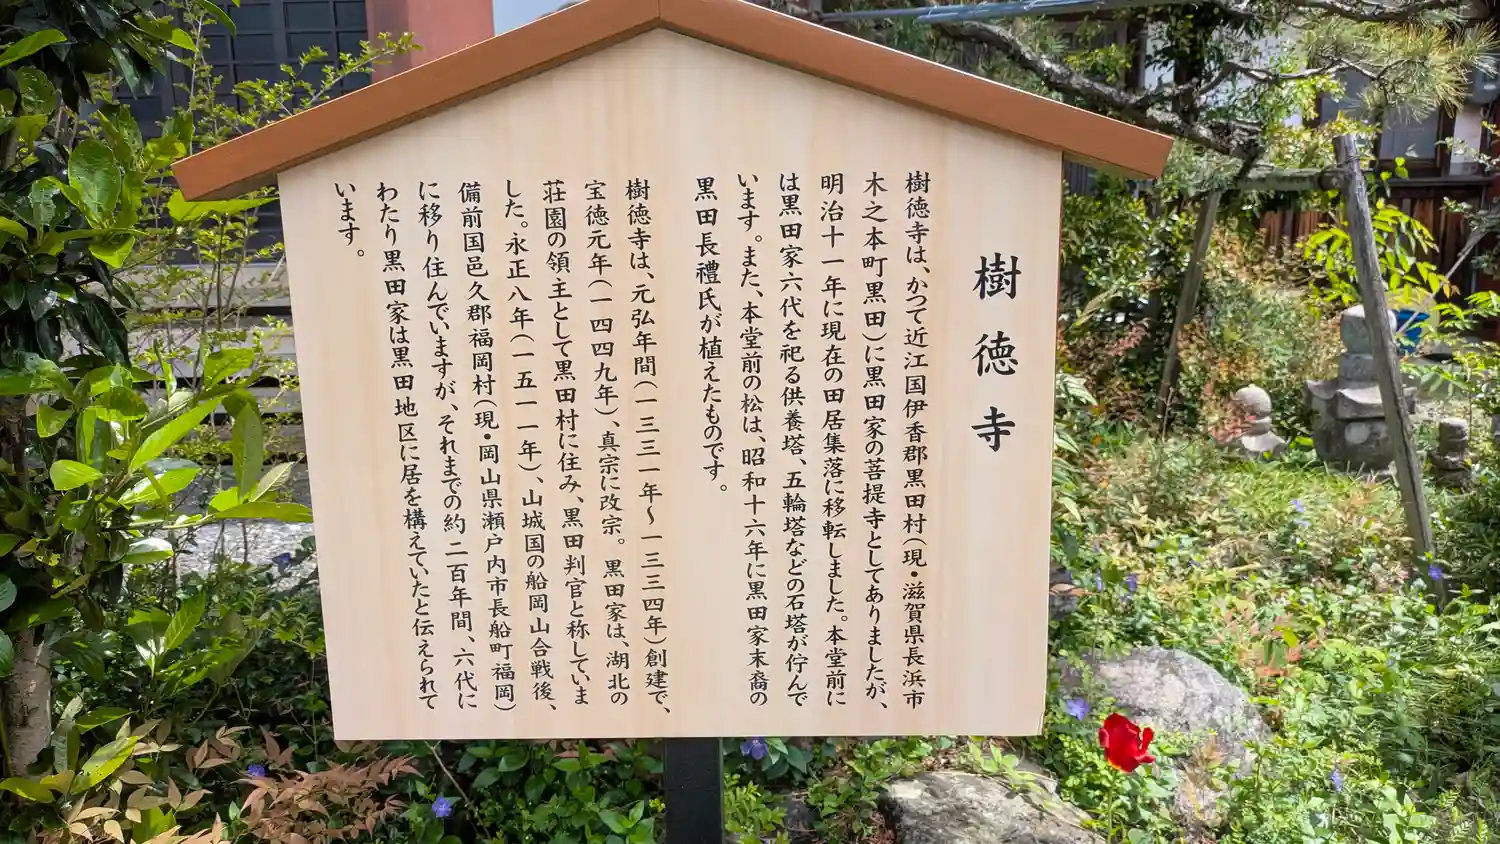 樹徳寺
樹徳寺は、かつて近江国伊香郡黒田村(現・滋賀県長浜市
木之本町黒田)に黒田家の菩提寺としてありましたが、
明治十一年に現在の田居集落に移転しました。本堂前に
は黒田家六代を祀る供養塔、五輪塔などの石塔が佇んで
います。また、本堂前の松は、昭和十六年に黒田家末裔の
黒田長禮氏が植えたものです。
樹徳寺は、元弘年間(一三三一年〜一三三四年)創建で、
宝徳元年(一四四九年)、真宗に改宗。黒田家は、湖北の
荘園の領主として黒田村に住み、黒田判官と称していま
した。永正八年(一五一一年)、山城国の船岡山合戦後、
備前国邑久郡福岡村(現・岡山県瀬戸内市長船町福岡)
に移り住んでいますが、それまでの約二百年間、六代に
わたり黒田家は黒田地区に居を構えていたと伝えられて
います。